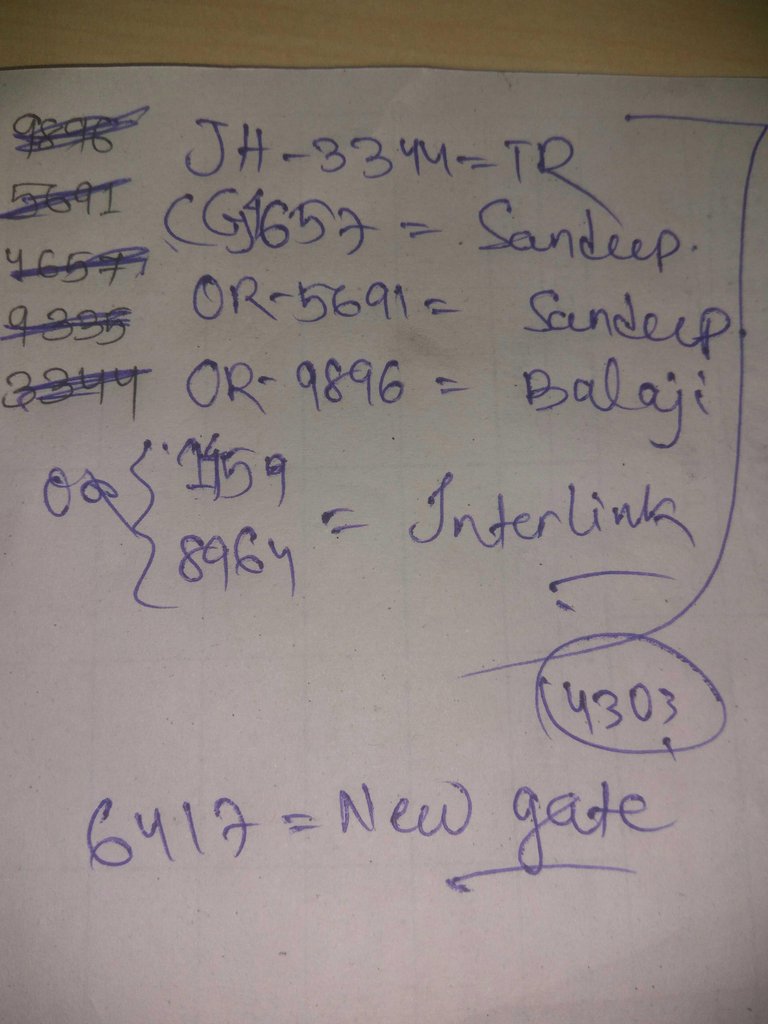 9896
5691
4657
9335
3344
JH-3344=TR
CG4657 = Sandeep.
OR-5691= Sandeep.
OR-9896 = Balaji
OR { 1459
8964 = Interlink
4303
6417=New gate